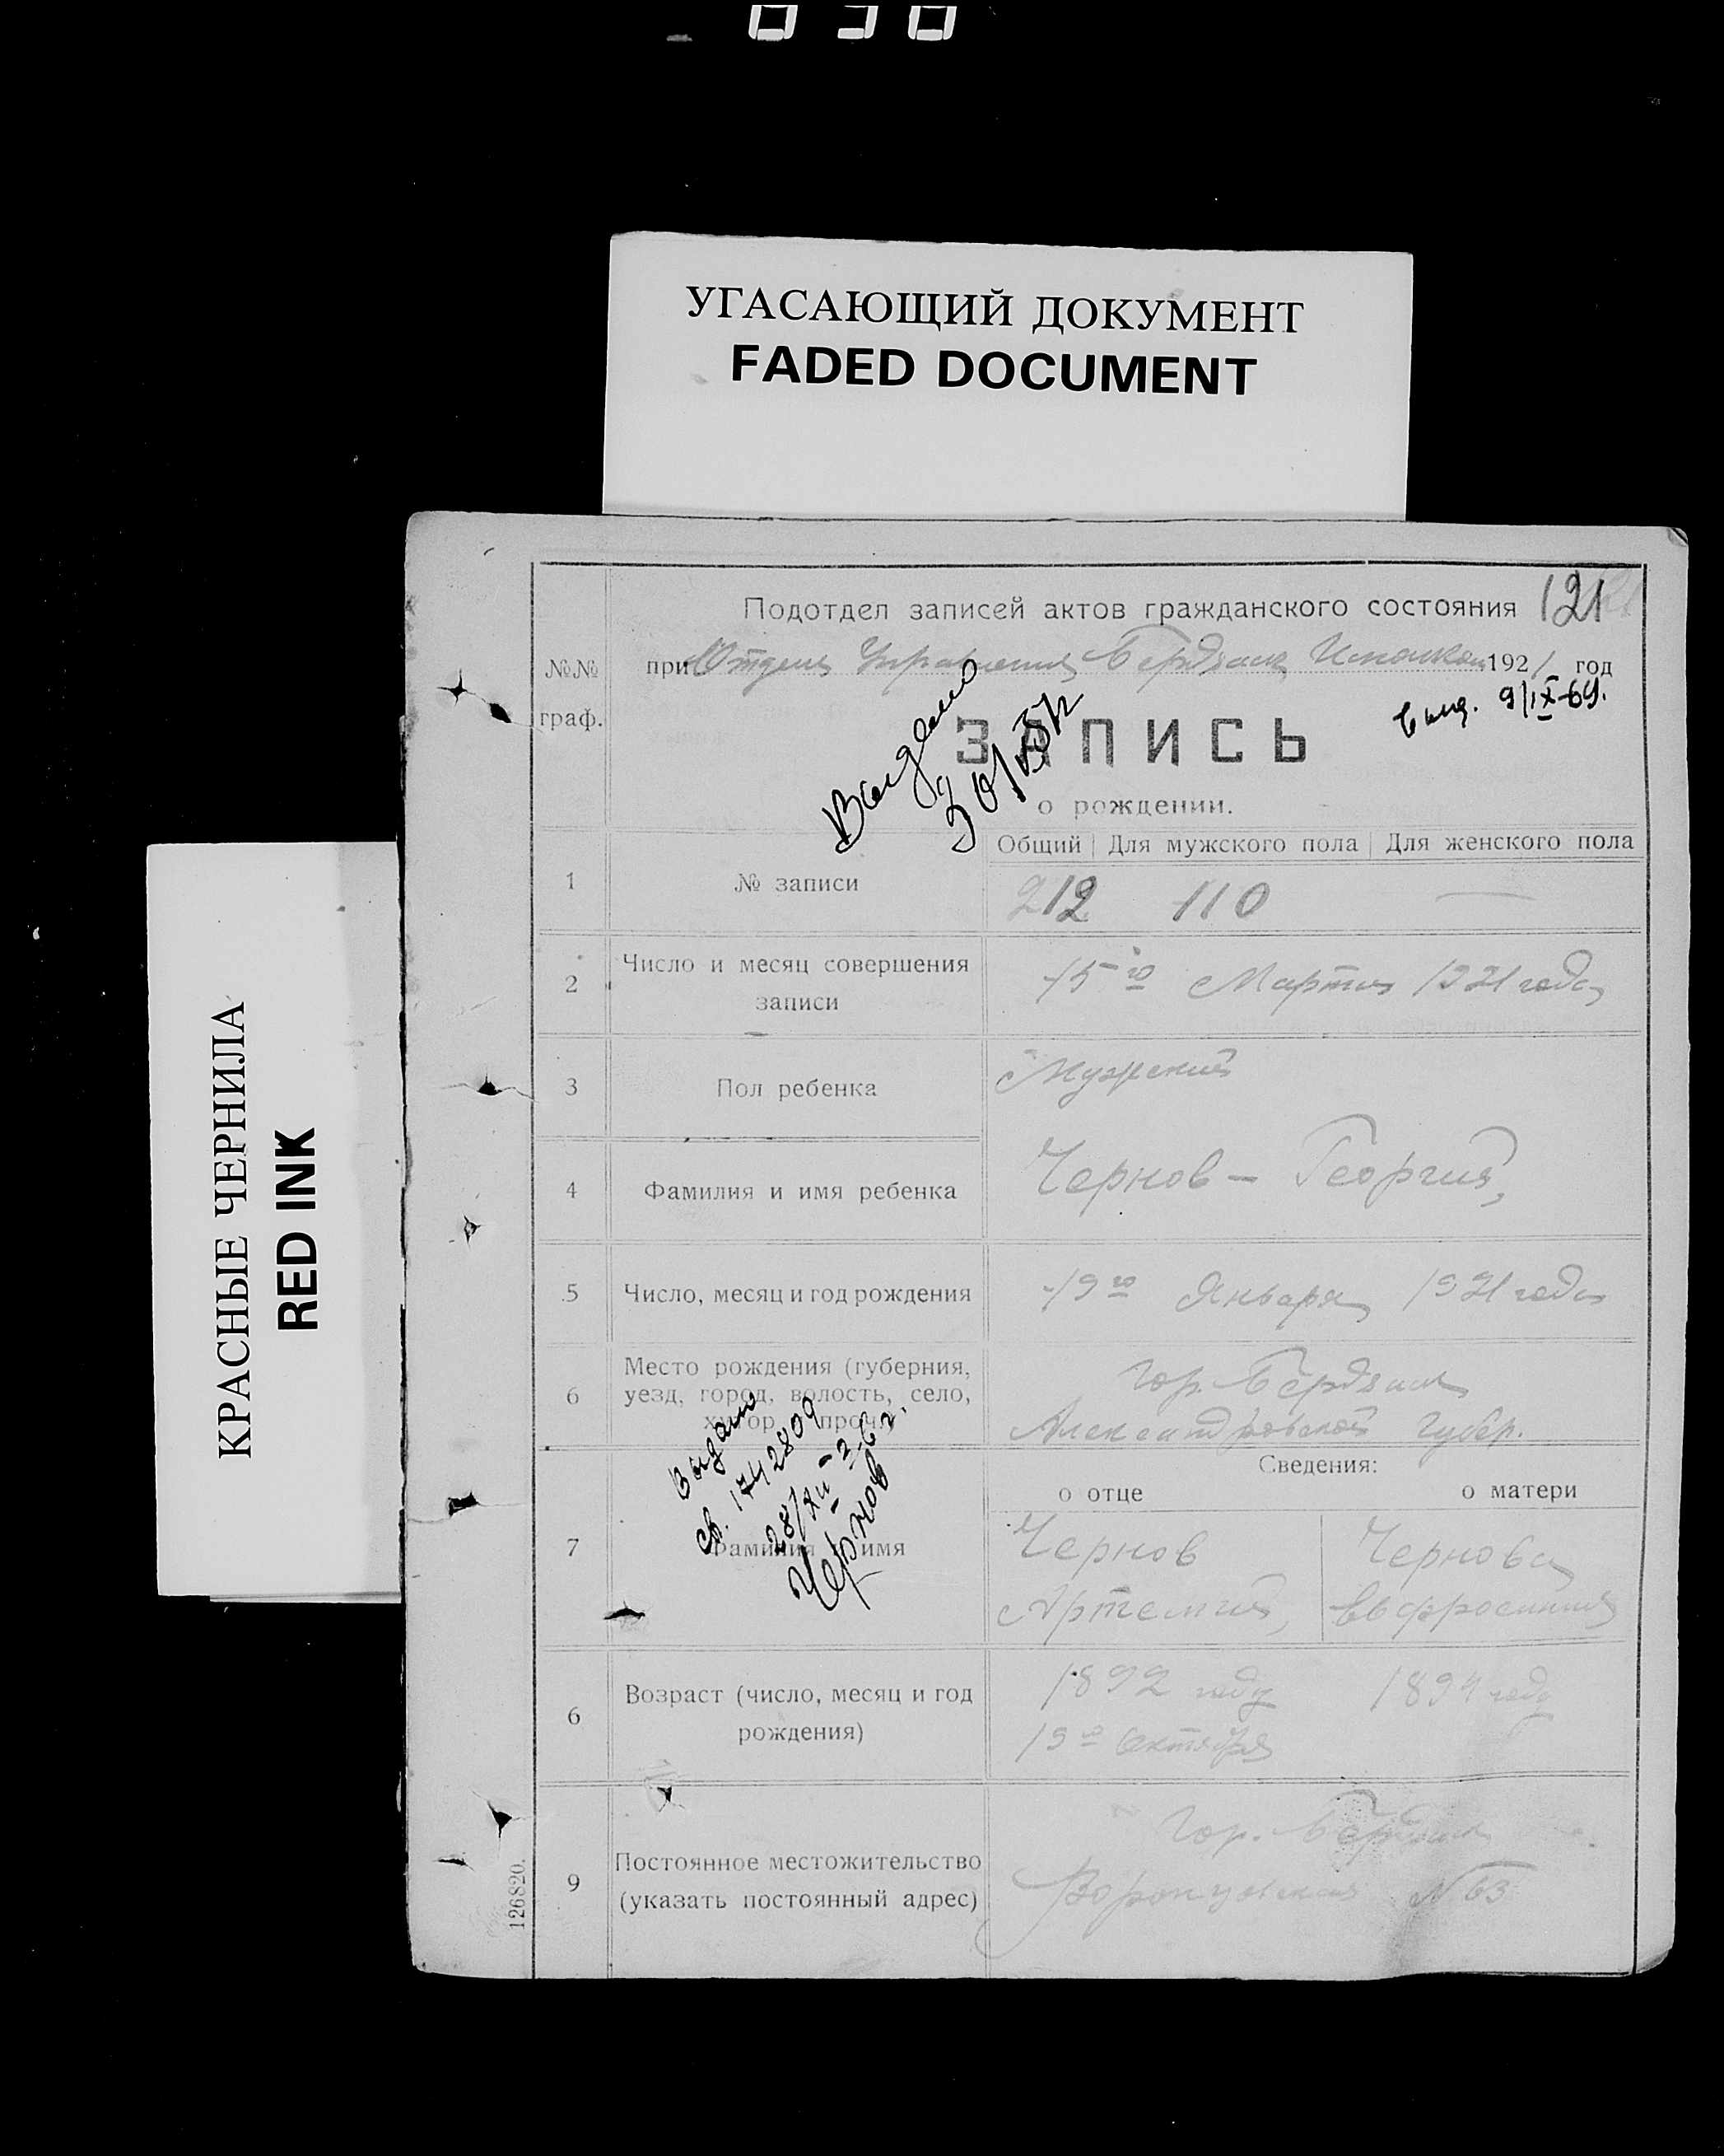 УГАСАЮЩИЙ ДОКУМЕНТ
FADED DOCUMENT
КРАСНЫЕ ЧЕРНИЛА
RED INK
121
Подотдел записей актов гражданского состояния
№№ граф.
при Отделе Управления Бердянск Исполкома 1921 год
выд. 9/IX-69.
Выдано
ЗАПИСЬ
о рождении.
Общий Для мужского пола Для женского пола
1 № записи 212 110 —
2 Число и месяц совершения записи 15го Марта 1921 года
3 Пол ребенка Мужской
4 Фамилия и имя ребенка Чернов – Георгий,
5 Число, месяц и год рождения 19го Января 1921 года
6 Место рождения (губерния, уезд, город, волость, село, хутор и проч.) Гор. Бердянск
Александровской губер.
Выдано
св. 1742809
28/XII-36 г.
Чернов
Сведения:
о отце о матери
7 Фамилия и имя Чернов Чернова
Артемий, Евфросиния
6 Возраст (число, месяц и год рождения) 1892 году 1894 году
19го Октября
9 Постоянное местожительство (указать постоянный адрес) Гор. Бердянск
Воронцовская № 63
126820.